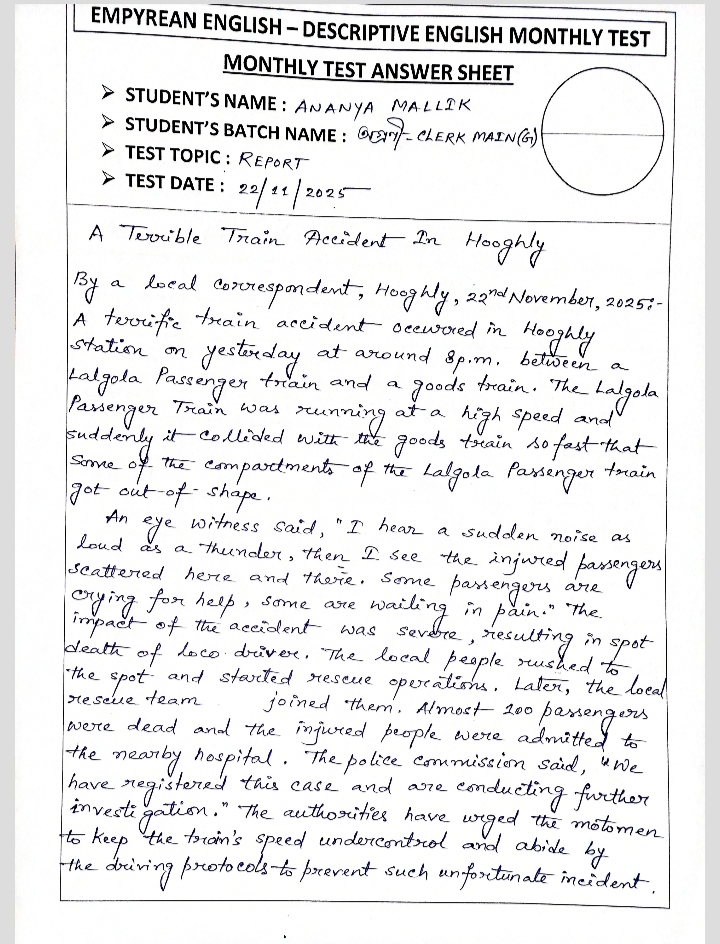 EMPYREAN ENGLISH – DESCRIPTIVE ENGLISH MONTHLY TEST
MONTHLY TEST ANSWER SHEET
➤ STUDENT'S NAME : ANANYA MALLIK
➤ STUDENT'S BATCH NAME : - CLERK MAIN(G)
➤ TEST TOPIC : REPORT
➤ TEST DATE : 22/11/2025
A Terrible Train Accident In Hooghly
By a local correspondent, Hooghly, 22nd November, 2025:-
A terrific train accident occurred in Hooghly
station on yesterday at around 8p.m. between a
Lalgola Passenger train and a goods train. The Lalgola
Passenger Train was running at a high speed and
suddenly it collided with the goods train so fast that
some of the compartments of the Lalgola Passenger train
got out-of-shape.
An eye witness said, "I hear a sudden noise as
loud as a thunder, then I see the injured passengers
scattered here and there. Some passengers are
crying for help, some are wailing in pain." The
impact of the accident was severe, resulting in spot
death of loco driver. The local people rushed to
the spot and started rescue operations. Later, the local
rescue team joined them. Almost 100 passengers
were dead and the injured people were admitted to
the nearby hospital. The police commission said, "We
have registered this case and are conducting further
investigation." The authorities have urged the motomen
to keep the train's speed undercontrol and abide by
the driving protocols to prevent such unfortunate incident.